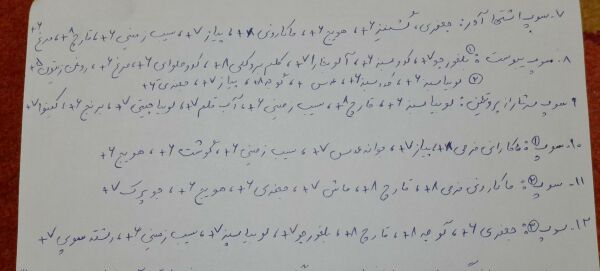 ۷. سوپ اشتها آور: جعفری، گشنیز ۶+، هویج ۶+، ماکارونی ۸+، پیاز ۷+، سیب زمینی ۶+، قارچ ۸+، مرغ ۶+
۸. سوپ یبوست: ① بلغور جو ۷+، کدو سبز ۶+، آلو بخارا ۷+، کلم بروکلی ۸+، کدو حلوایی ۶+، مرغ ۶+، روغن زیتون ۵+
② لوبیا سبز ۶+، کدو سبز ۶+، عدس +، گوجه ۸+، پیاز ۷+، جعفری ۶+
۹. سوپ سرشار از پروتئین: لوبیا سبز ۶+، قارچ ۸+، سیب زمینی ۶+، آب قلم ۷+، لوبیا چیتی ۷+، برنج ۶+، کینوا ۷+
۱۰. سوپ ①: ماکارانی فرمی ۸+، پیاز ۷+، جوانه عدس ۷+، سیب زمینی ۶+، گوشت ۶+، هویج ۶+
۱۱. سوپ ②: ماکارونی فرمی ۸+، قارچ ۸+، ماش ۷+، جعفری ۶+، هویج ۶+، جو پرک ۷+
۱۲. سوپ ③: جعفری ۶+، گوجه ۸+، قارچ ۸+، بلغور جو ۷+، لوبیا سبز ۷+، سیب زمینی ۶+، رشته سوپی ۷+